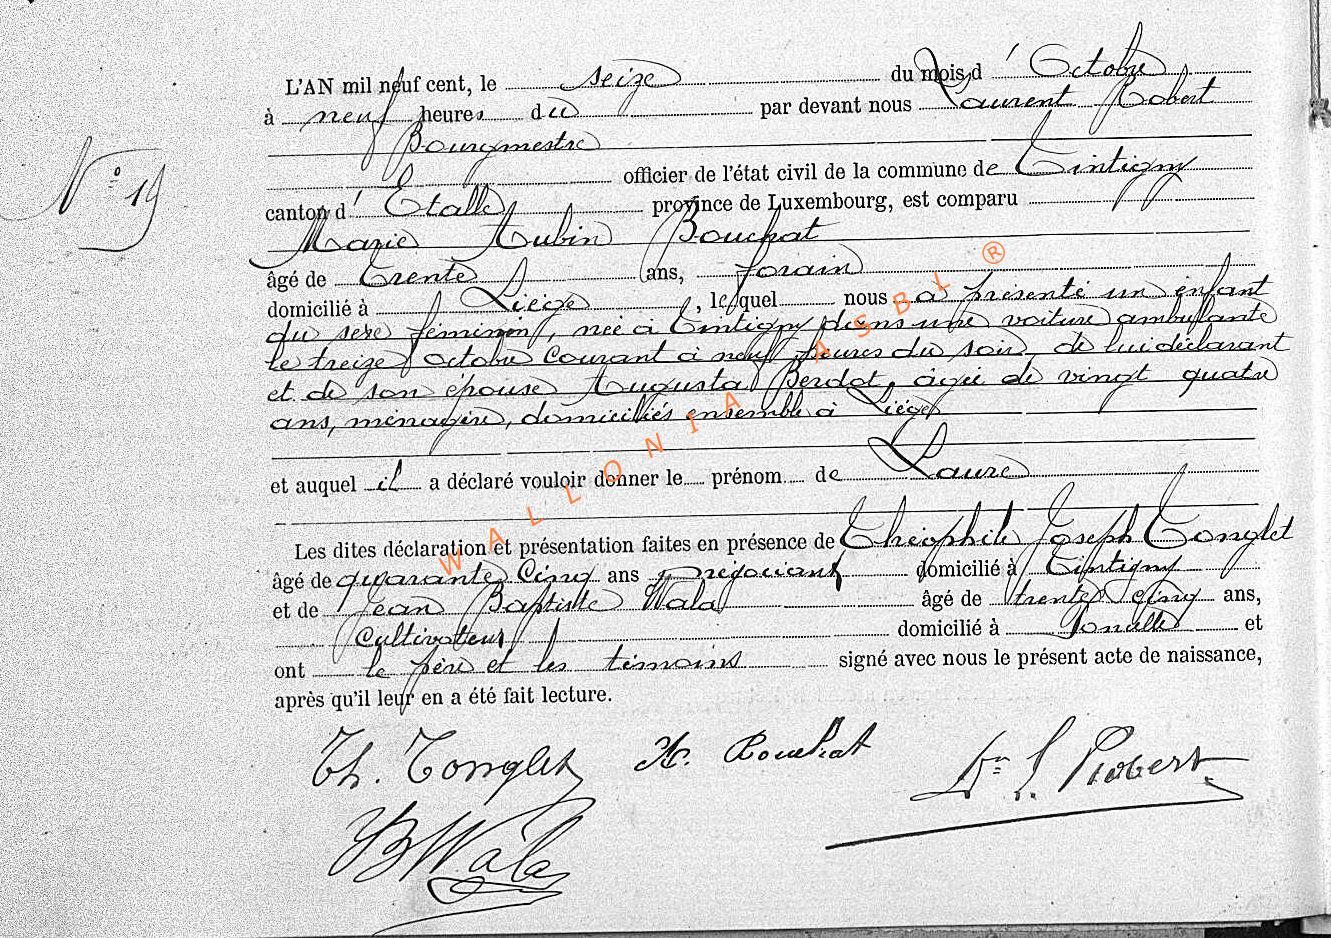 L'AN mil neuf cent, le seize du mois d' Octobre
à neuf heures du par devant nous Laurent Robert
Bourgmestre
officier de l'état civil de la commune de Tintigny
N° 19
canton d' Etalle province de Luxembourg, est comparu
Marie Aubin Bouchat
âgé de trente ans, forain
domicilié à Liége, lequel nous a présenté un enfant
du sexe féminin, née à Tintigny dans une voiture ambulante
le treize octobre courant à neuf heures du soir, de lui déclarant
et de son épouse Augusta Berdot, âgée de vingt quatre
ans, ménagère, domiciliés ensemble à Liége
et auquel il a déclaré vouloir donner le prénom de Laure
Les dites déclaration et présentation faites en présence de Théophile Joseph Tonglet
âgé de quarante cinq ans négociant domicilié à Tintigny
et de Jean Baptiste Wala âgé de trente cinq ans,
cultivateur domicilié à et
ont le père et les témoins signé avec nous le présent acte de naissance,
après qu'il leur en a été fait lecture.
Th. Tonglet Bouchat Dr L. Robert
JB Wala
WALLONIA ASBL ®